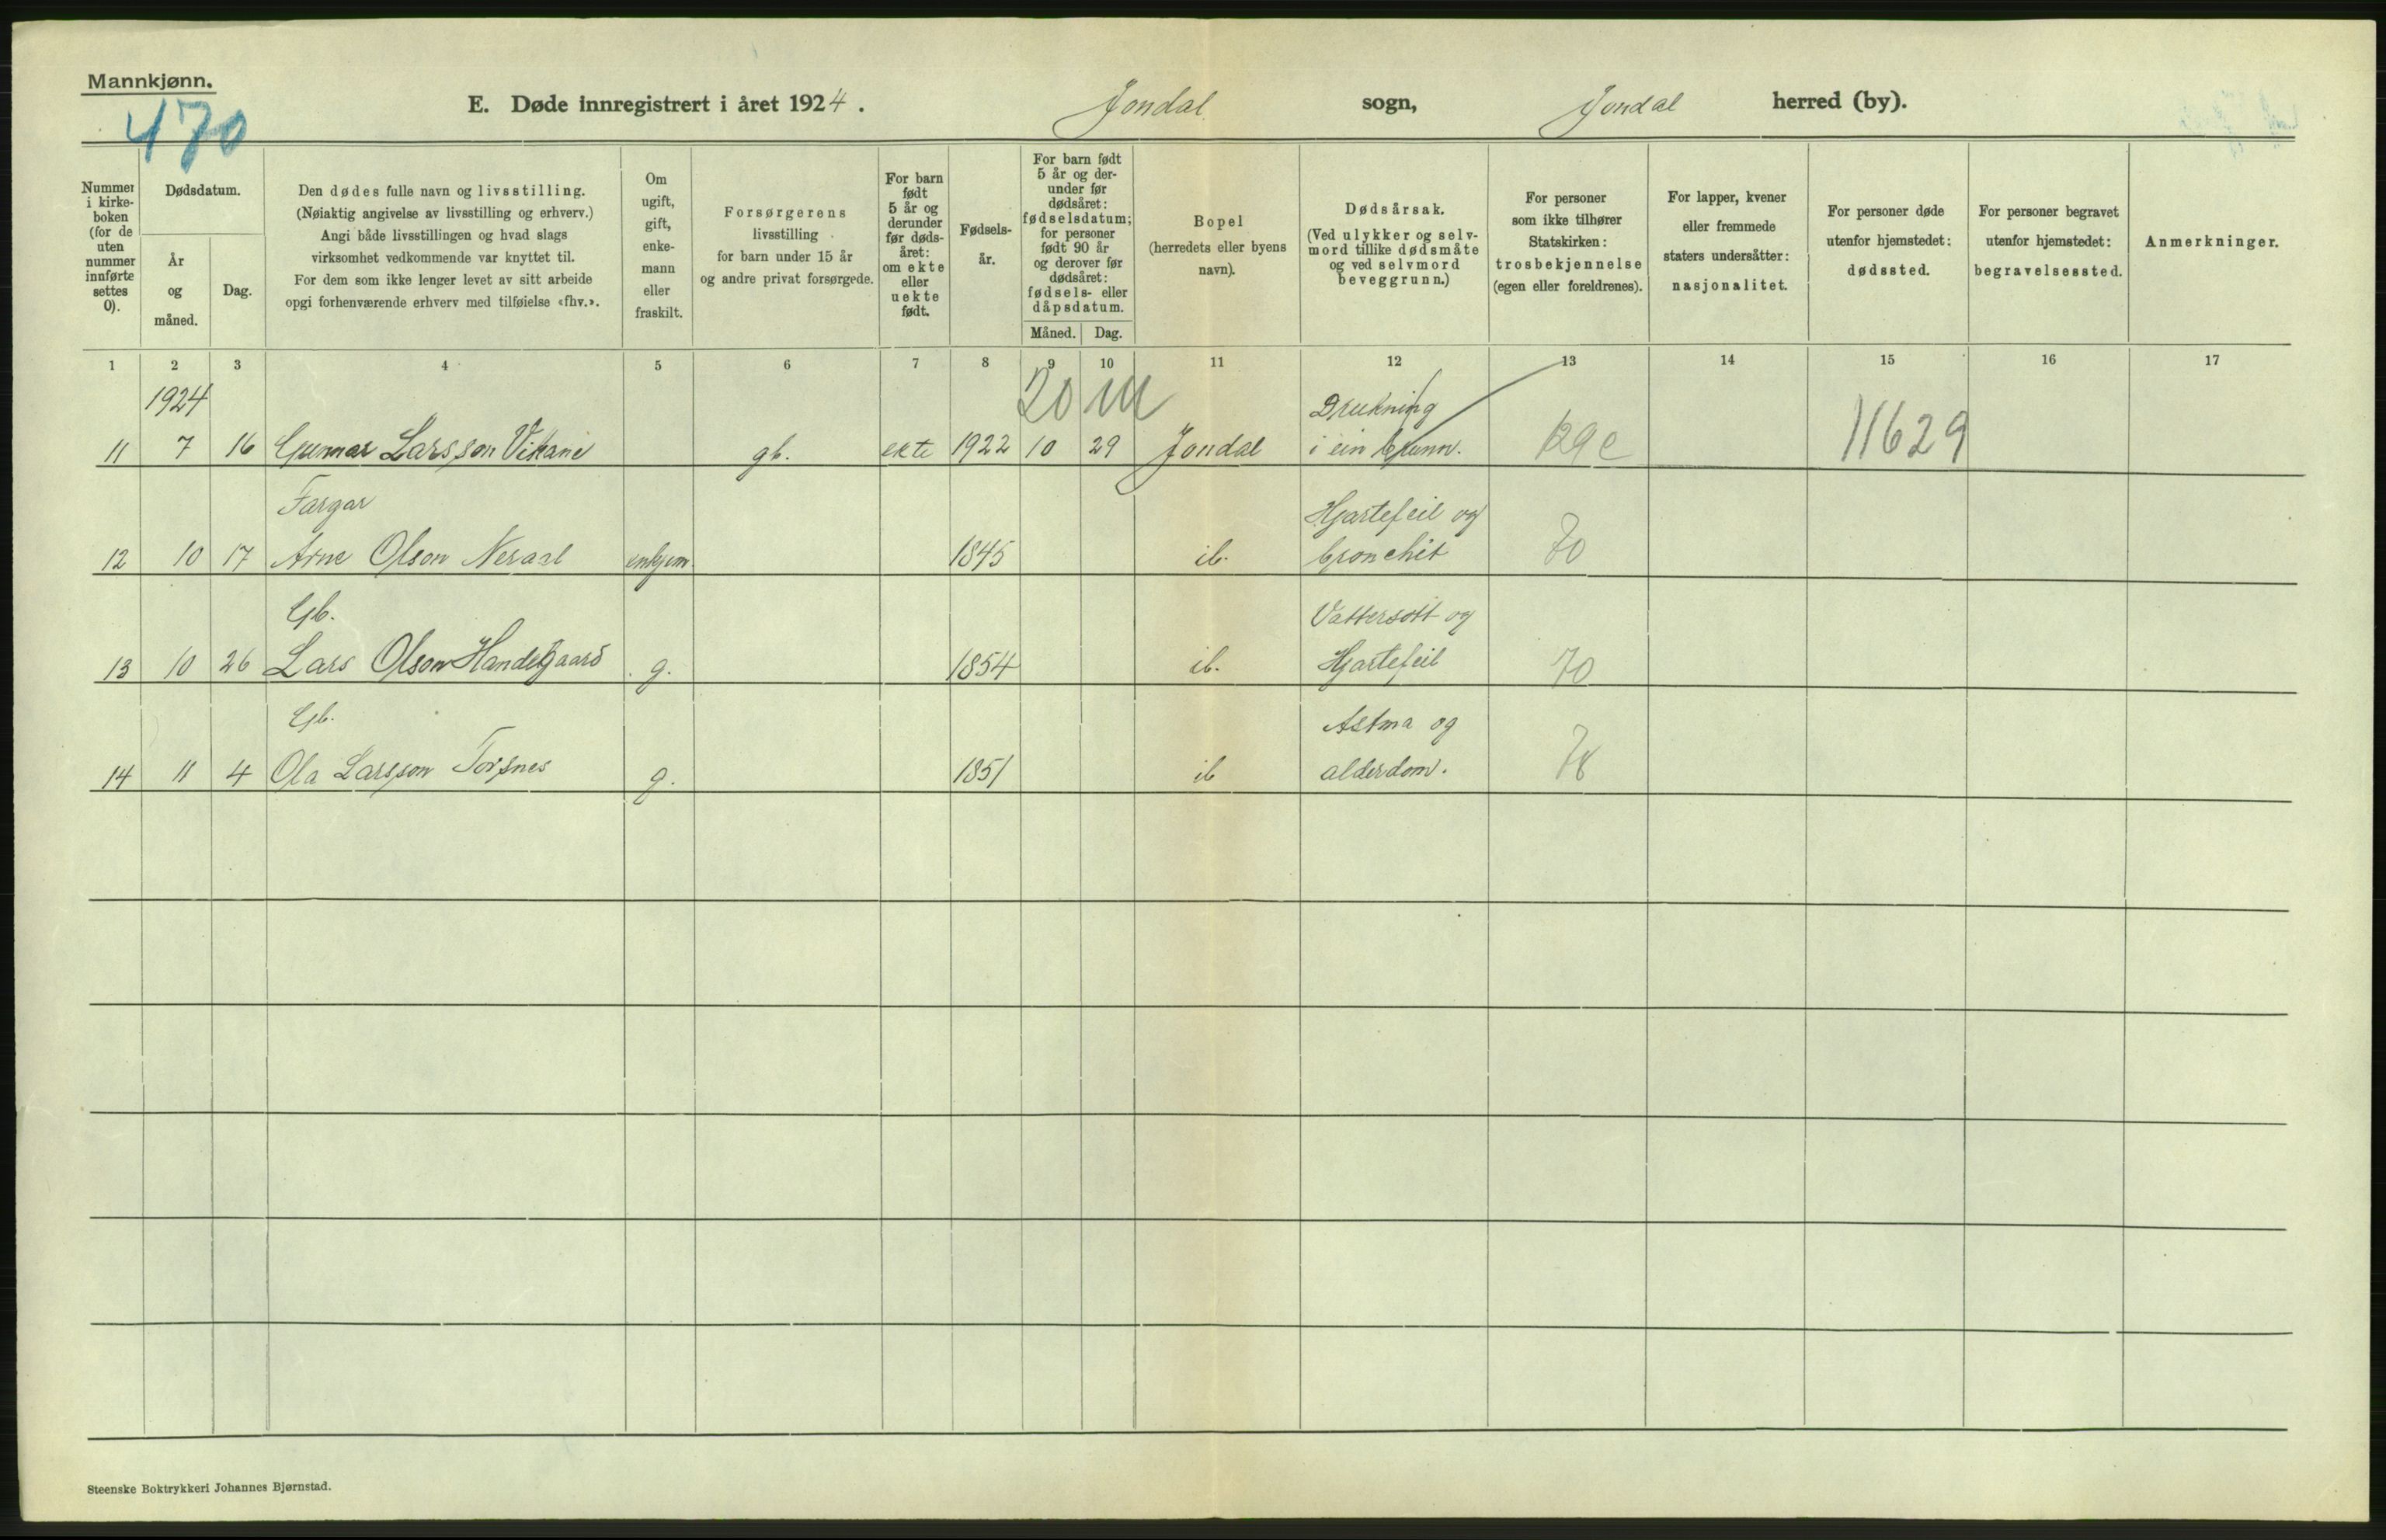 Mannkjønn.
470
E. Døde innregistrert i året 1924. Jondal sogn, Jondal herred (by).
Nummer i kirke-boken (for de uten nummer innførte settes 0).
Dødsdatum.
År og måned.
Dag.
Den dødes fulle navn og livsstilling.
(Nøiaktig angivelse av livsstilling og erhverv.)
Angi både livsstillingen og hvad slags
virksomhet vedkommende var knyttet til.
For dem som ikke lenger levet av sitt arbeide
opgi forhenværende erhverv med tilføielse «fhv.».
Om ugift, gift, enke-mann eller fraskilt.
Forsørgerens
livsstilling
for barn under 15 år
og andre privat forsørgede.
For barn født 5 år og derunder før døds-året: om ekte eller uekte født.
Fødsels-år.
For barn født 5 år og der-under før dødsåret: fødselsdatum; for personer født 90 år og derover før dødsåret: fødsels- eller dåpsdatum.
Måned.
Dag.
Bopel
(herredets eller byens
navn).
Dødsårsak.
(Ved ulykker og selv-
mord tillike dødsmåte
og ved selvmord
beveggrunn.)
For personer
som ikke tilhører
Statskirken:
trosbekjennelse
(egen eller foreldrenes).
For lapper, kvener
eller fremmede
staters undersåtter:
nasjonalitet.
For personer døde
utenfor hjemstedet:
dødssted.
For personer begravet
utenfor hjemstedet:
begravelsessted.
Anmerkninger.
1 2 3 4 5 6 7 8 9 10 11 12 13 14 15 16 17
1924 20 m Drukning
11 7 16 Gunnar Larsson Vikane gb. ekte 1922 10 29 Jondal i ein brunn. 11629
Fargar Hjartefeil og
12 10 17 Arne Olson Neraal enkjem 1845 ib. bronchit
Gb. Vattersott og
13 10 26 Lars Olson Handegaard g. 1854 ib. Hjartefeil 70
Gb. Astma og
14 11 4 Ola Larsson Torsnes g. 1851 ib alderdom.
Steenske Boktrykkeri Johannes Bjørnstad.